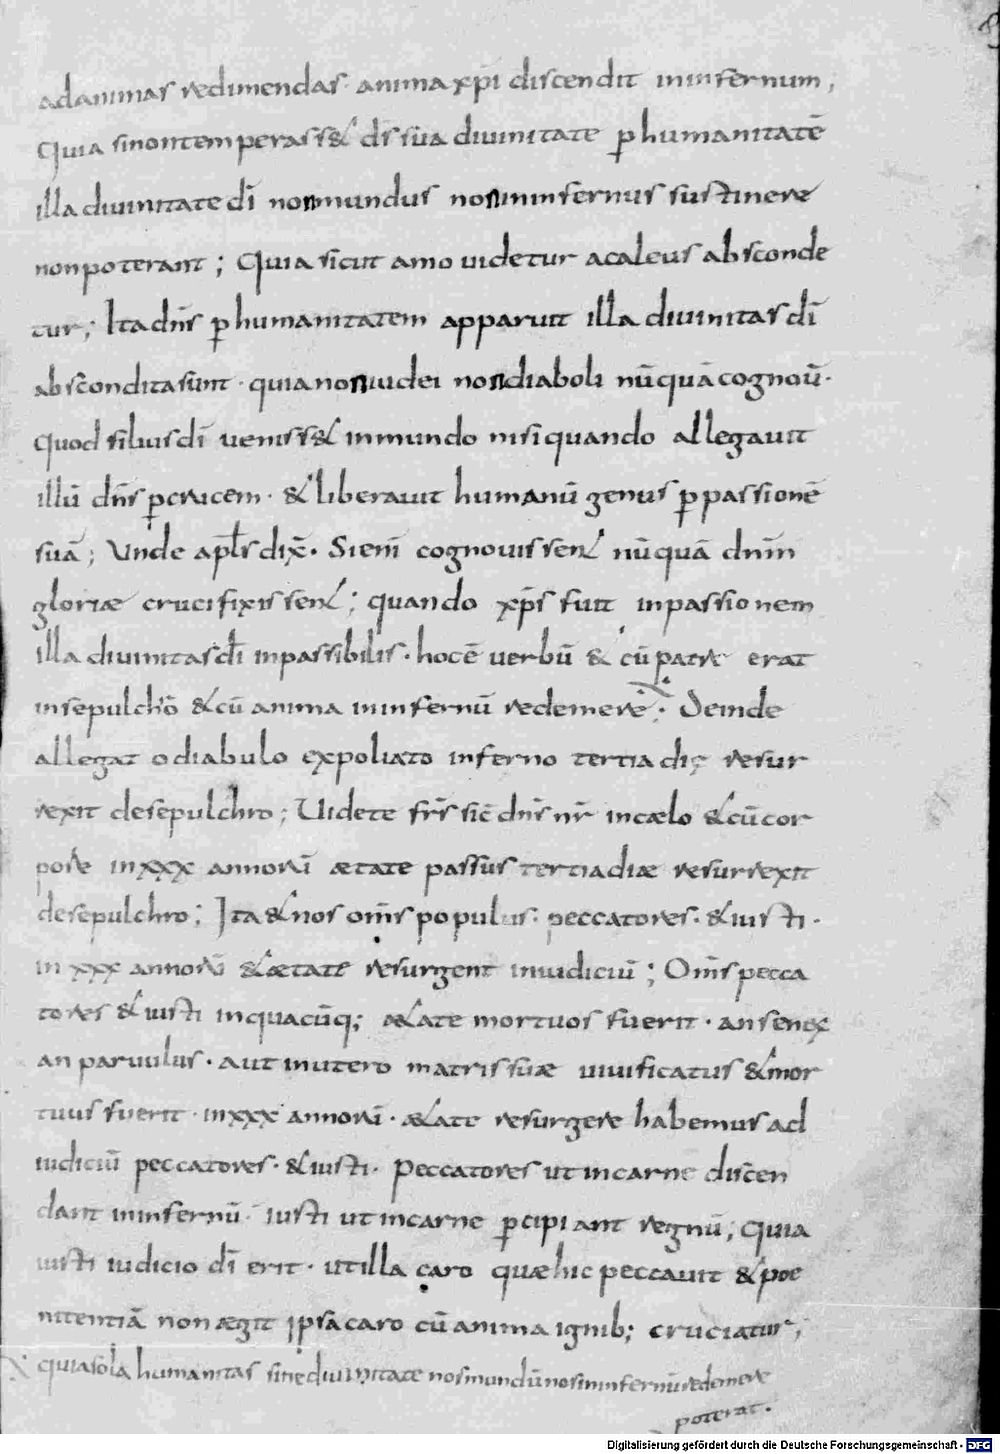 ad animas redimendas · anima xp̄i discendit in infernum,
Quia si non temperass& ds̄ sua diuinitate ꝑ humanitatē
illa diuinitate dī non mundus non infernus sustinere
non poterant ; Quia sicut amo uidetur acaleus absconde
tur ; Ita dn̄s ꝑ humanitatem apparuit illa diuinitas dī
absconditasunt · quia non iudei non diaboli nū́quā cognoū ·
Quod filius dī ueniss& in mundo nisi quando allegauit
illū dn̄s ꝑ crucem · & liberauit humanū genus ꝑ passionē
suā ; Unde apl̄s dix̄ · Si enī cognouissent nūquā dn̄m
gloriæ crucifixissent ; quando xp̄s fuit in passionem
illa diuinitas dī inpassibilis · hoc ē uerbū & cū patre erat
in sepulchrō & cū anima in infernū redemere · Deinde
allegato diabulo expoliato inferno tertia die resur
rexit de sepulchro ; Uidete fr̄s sic̄ dn̄s nr̄ in cælo & cū cor
pore in xxx annorū ætate passus tertia diæ resurrexit
de sepulchro ; Ita & nos om̄s populus · peccatores · & iusti ·
in xxx annorū & ætate resurgent in iudiciū ; Om̄s pecca
tores & iusti in quacūq; æ&ate mortuos fuerit · an senex
an paruulus · aut in utero matris suæ uiuificatus & mor
tuus fuerit · in xxx annorū · æ&ate resurgere habemus ad
iudiciū peccatores · & iusti · Peccatores ut in carne discen
dant in infernū · iusti ut in carne ꝑcipiant regnū ; Quia
iusti iudicio dī erit · ut illa caro quæ hic peccauit & poe
nitentiā non ægit ipsa caro cū anima ignib; cruciatur ;
quia sola humanitas sine diuinitate nos mundū nos in infernū redemere
poterat ·